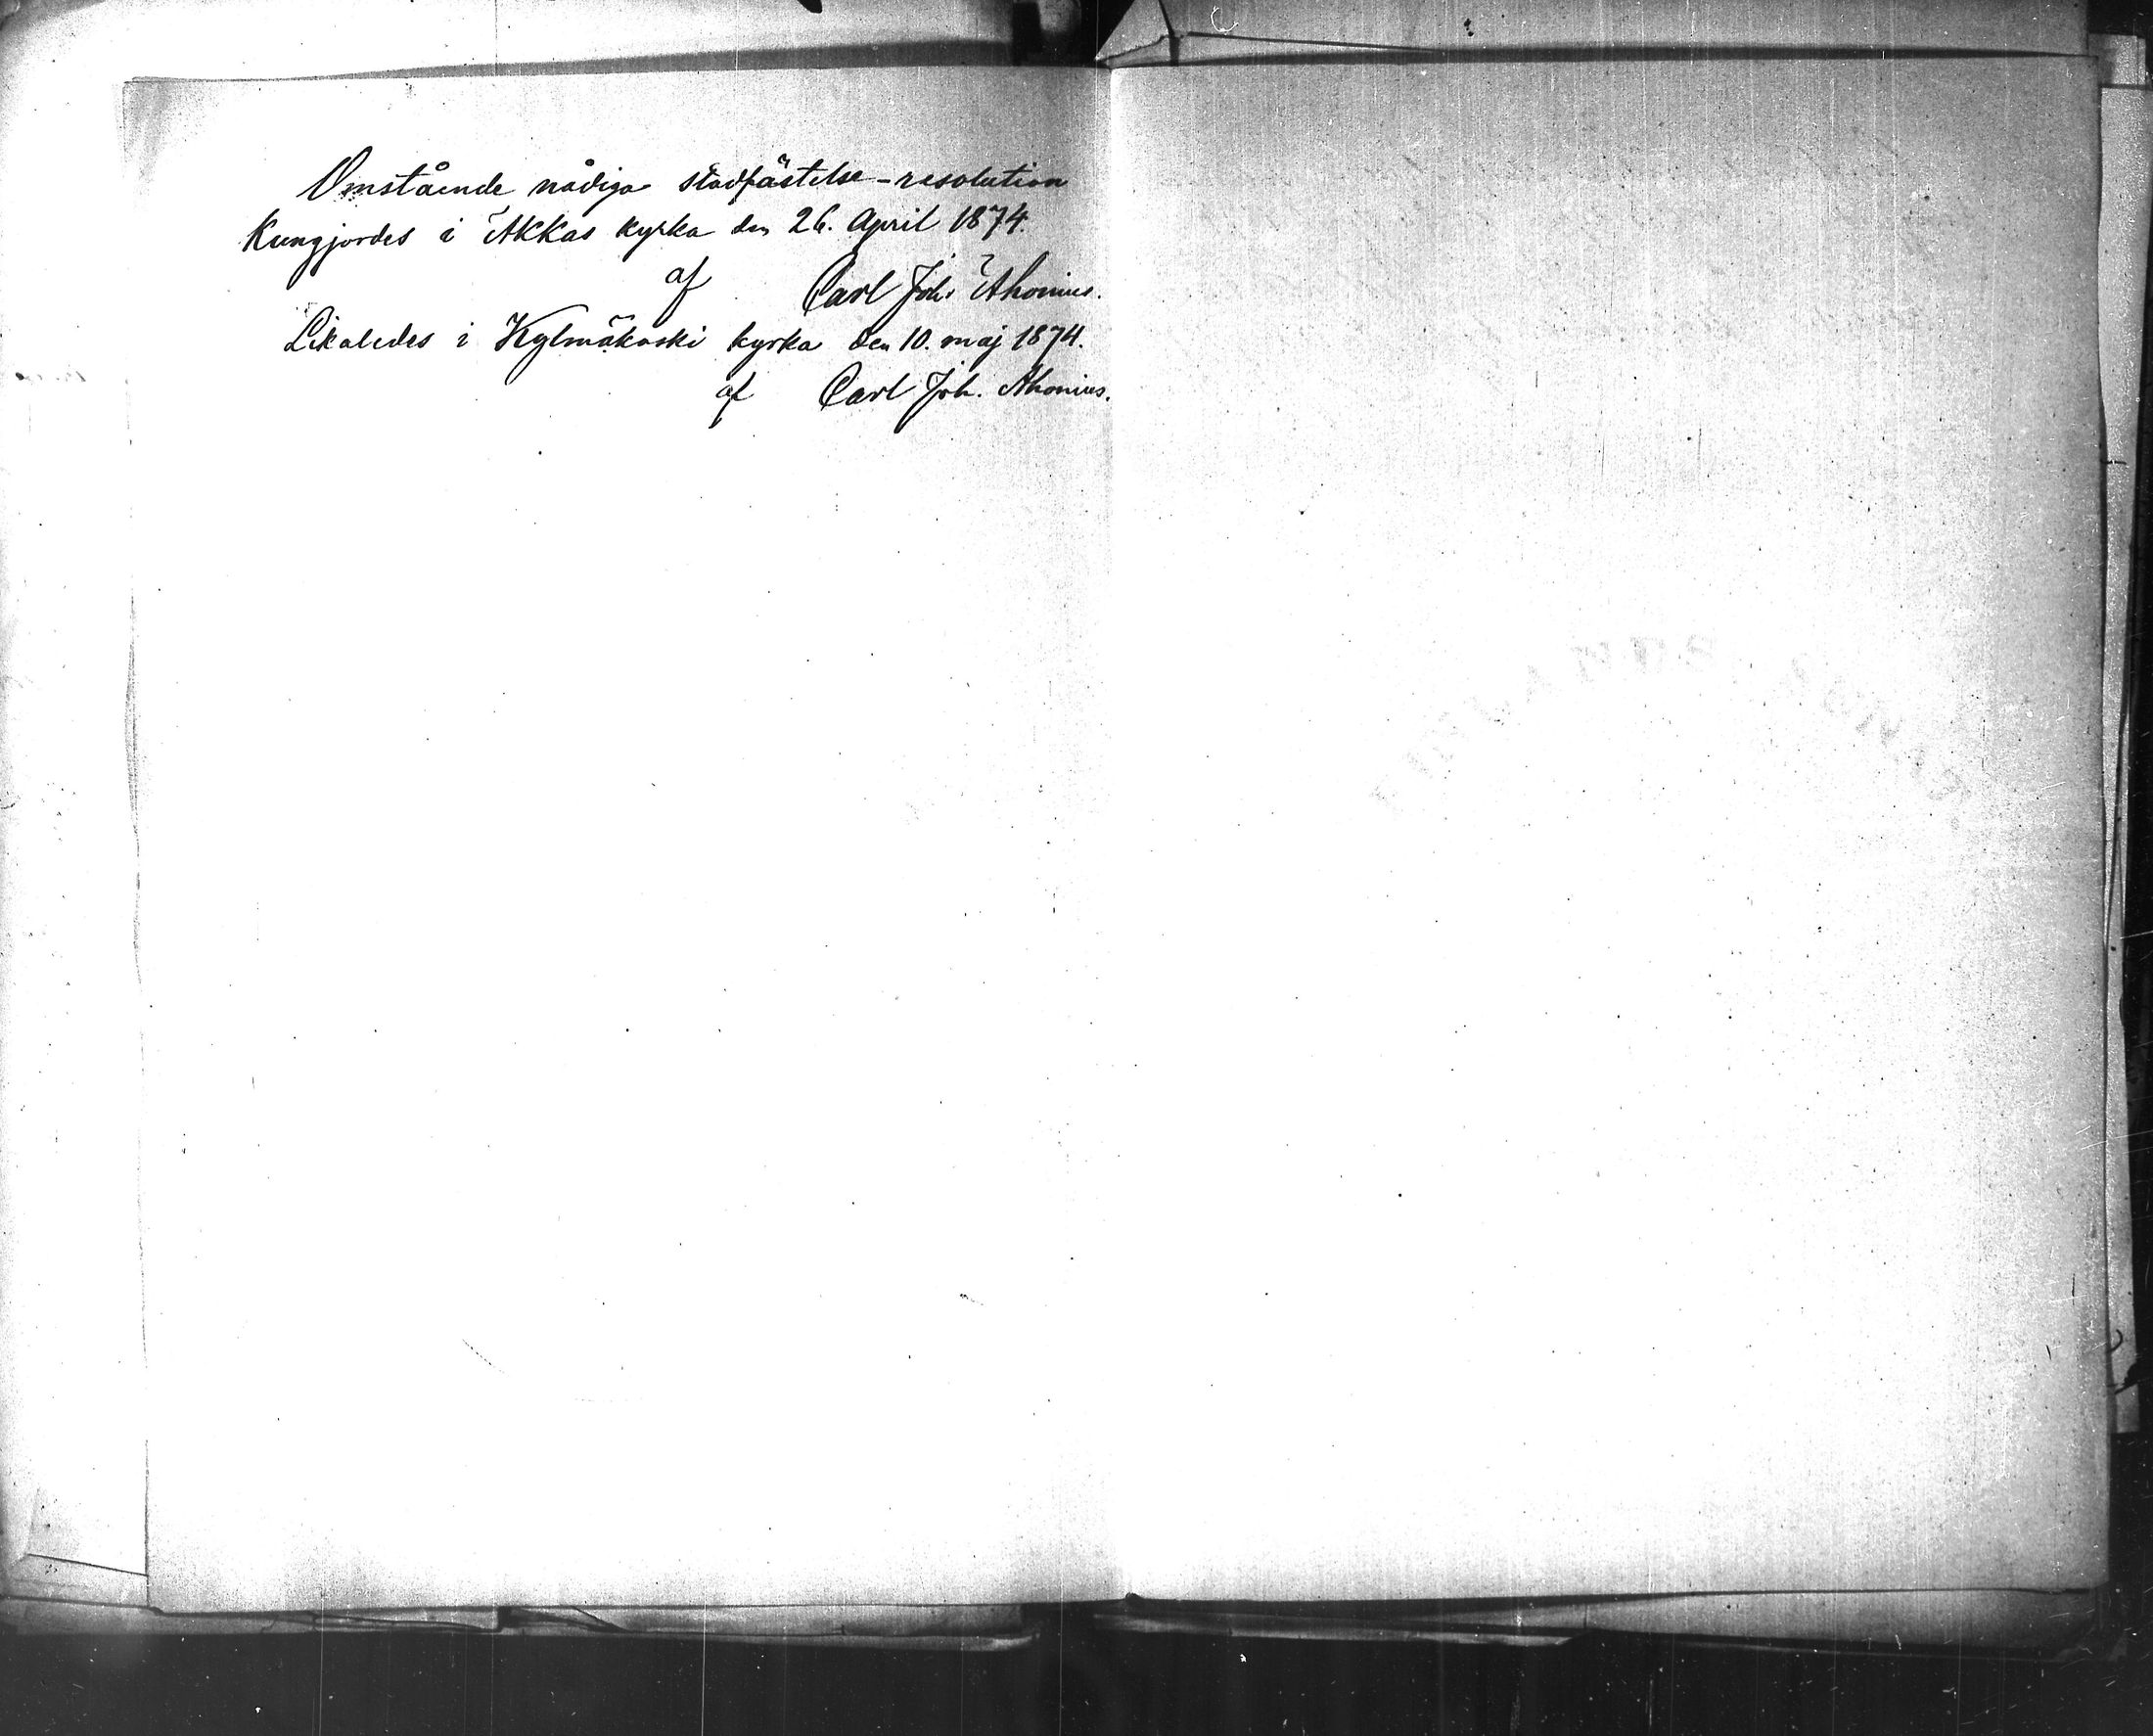 Omstående nådiga stadfästelse-resolution
Kungjordes i Akkas kyrka den 26. April 1874.
af Carl Joh. Ahonius.
Likaledes i Kylmäkoski kyrka den 10. maj 1874.
af Carl Joh. Ahonius.